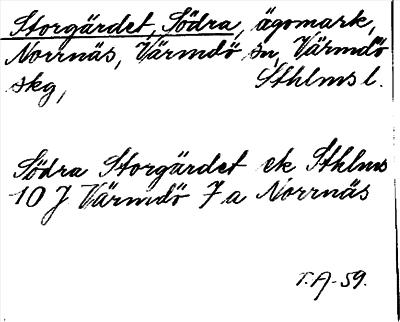 Storgärdet, Södra, ägomark,
Norrnäs, Värmdö sn, Värmdö
skg, Sthlms l.
Södra Storgärdet ek Sthlms
10 J Värmdö 7 a Norrnäs
r. A-59.